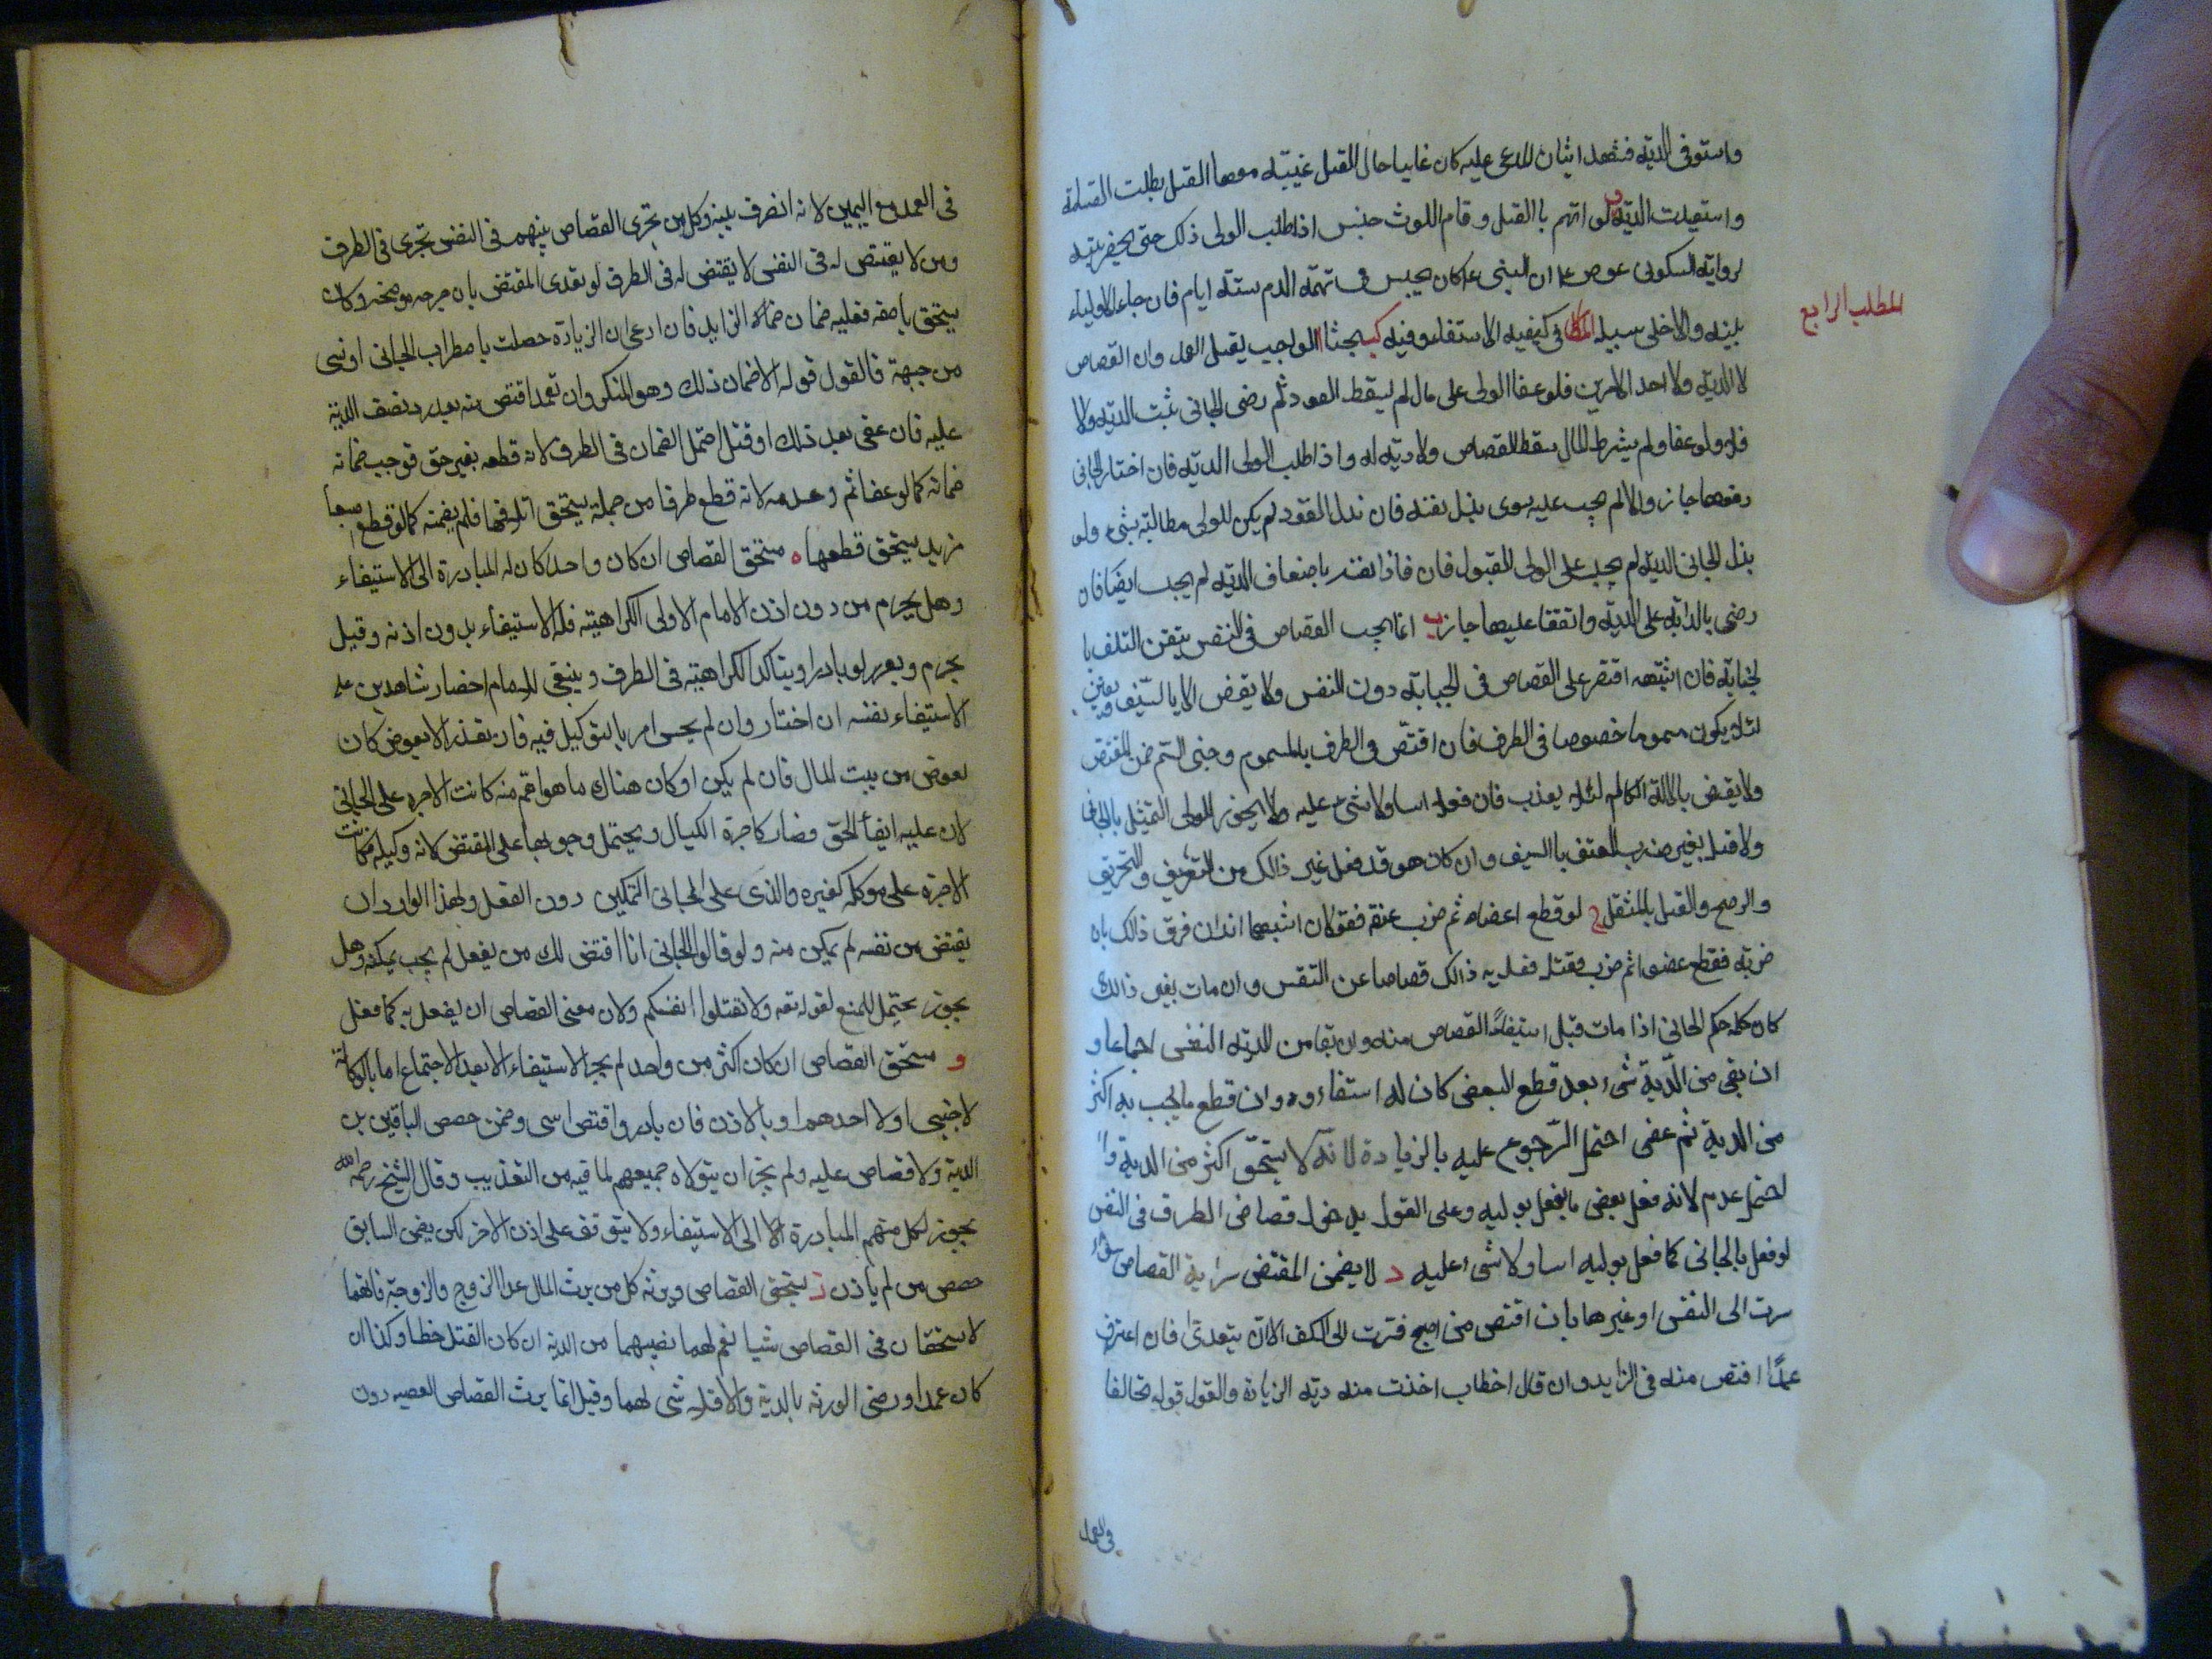 واستوفى الديه فشهد اثنان المدعى عليه كان غايبا حال القتل غيبته معها القتل بطلت القسامة
واستعيدت الديه لو اتهم باالقتل وقام اللوث حبس اذا طلب الولى ذلك حتى يحضر بينه
لرواية السكونى ان النبى كان يحبس فى تهمة الدم ستة ايام فان جاء الاولياء
المطلب الرابع
بلينه والاخلى سبيله فى كيفيه الاستفاء وفيه الواجب بقتل العمد وان القصاص
لا الديه ولا احد الامرين فلو عفا الولى على مال لم يسقط العود ثم رضى الجانى ثبت الديه والا
فله ولو عفا ولم يشرط المال سقط القصاص ولا ديه له واذا طلب الولى الديه فان اختار الجانى
دفعها جاز والا لم يجب عليه سوى بذل نفسه فان بذل القود لم يكن للولى مطالبته بشى ولو
بذل الجانى الديه لم يجب على الولى القبول فان فاذا نفسه باضعاف الديه لم يجب ايضا فان
رضى بالديه على الديه واتفقا عليها جاز ب انما يجب القصاص فى النفس بتيقن التلف با
لجنايه فان اقتصر على القصاص فى الجنايه دون النفس ولا يقتض الا بالسيف ويعتبر
لئلا يكون مسموما خصوصا فى الطرف فان اقتص فى الطرف بالمسموم وجنى السم ضمن المقتص
ولا يقتض بالالة الكالة لئلا يعذب فان فعل اسا ولا شىء عليه ولا يجوز للولى التمثيل بالجانى
ولا قتله بغير ضرب العنق باالسيف وان كان هو قد فعل غير ذالك من التغريق والتحريق
والرضح والقتل بالمثقل ج لو قطع اعضاه ثم ضرب عنقه فقولان اشبهما انه ان فرق ذالك بان
ضربه فقطع عضوا ثم ضرب فقتله فعل به ذالك قصاصا عن النفس وان مات بغير ذالك
كان حكمه حكم الجانى اذا مات قبل استيفاء القصاص منه وان بقا من الديه النفس اجماعا و
ان بقى من الدية شىء بعد قطع البعض كان له استفاءه وان قطع ما يجب به اكثر
من الدية ثم عفى احتمل الرجوع عليه بالزيادة لانه لا يستحق اكثر من الدية و
احتمل عدم لانه فعل بعض ما يفعل بوليه وعلى القول بدخول قصاص الطرف فى النفس
لو فعل بالجانى كما فعل بوليه اسا ولا شىء عليه د لا يضمن المقتض سراية القصاص سواء
سرت الى النفس او غيرها بان اقتص من اصبع فسرت الى الكف الا ان يتعدى فان اعترف
عمدا اقتص منه فى الزايد وان قال اخطات اخذت منه ديه الزيادة والقول قوله
فى العمد
فى العمد مع اليمين لانه انصرف بنيته وكل من يجرى القصاص بينهم فى النفس يجرى فى الطرف
ومن لا يقتص له فى النفس لا يقتض له فى الطرف لو تعدى المقتض بان جرحه موضحه وكان
يستحق باضعه فعليه ضمان الزايد فان ادعى ان الزيادة حصلت باضطراب الجانى او بشى
من جهته فالقول قوله لاضمان ذلك وهو المنكر وان تعمد اقتص منه بعد رد نصف الدية
عليه فان عفى بعد ذلك او قتل احتمل الضمان فى الطرف لانه قطعه بغير حق فوجب ضمانه
ضمانه كما لو عفا ثم وعدمه لانه قطع طرفا من جملة يستحق اتلافها فلم يضمنه كما لو قطع اصبعا
من يد يستحق قطعها ه مستحق القصاص ان كان واحدا كان له المبادرة الى الاستيفاء
وهل يحرم من دون اذن الامام الاولى الكراهيته فله الاستيفاء بدون اذنه وقيل
يحرم ويعزر لو بادر ويتاكد الكراهيته فى الطرف وينبغى للامام احضار شاهدين على
الاستيفاء بنفسه ان اختار وان لم يحسن امر بالتوكيل فيه فان تعذر الا بعوض كان
العوض من بيت المال فان لم يكن او كان هناك ما هو اهم منه كانت الاجره على الجانى
لان عليه ايفأ الحق فصار كاجرة الكيال ويحتمل وجوبها على المقتض لانه وكيله فكانت
الاجره على موكله كغيره والذى على الجانى التمكين دون الفعل ولهذا لو اراد ان
يقتض من نفسه لم يمكن منه ولو قال الجانى انا اقتض لك من يفعل لم يجب تمكينه وهل
يجوز يحتمل المنع لقوله تعه ولا تقتلوا انفسكم ولان معنى القصاص ان يفعل به كما فعل
و مستحق القصاص ان كان اكثر من واحد لم يجز الاستيفاء الا بعد الاجتماع اما بالوكالة
لاجنبى او لا احدهم او بالاذن فان بادر واقتض اسى وضمن حصص الباقين من
الدية ولا قصاص عليه ولم يجز ان يتولاه جميعهم لما فيه من التعذيب وقال الشيخ رحمه الله
يجوز لكل منهم المبادرة الا الى الاستيفاء ولا يتوقف على اذن الاخر لكن يضمن السابق
حصص من لم ياذن ز يستحق القصاص ويرثه كل من يرث المال عدا الزوج والزوجة فانهما
لا يستحقان فى القصاص شيا نعم لهما نصيبهما من الدية ان كان القتل خطا وكذا ان
كان عمدا ورضى الورثه بالدية والا فلا شى لهما وقيل انما يرث القصاص العصبه دون